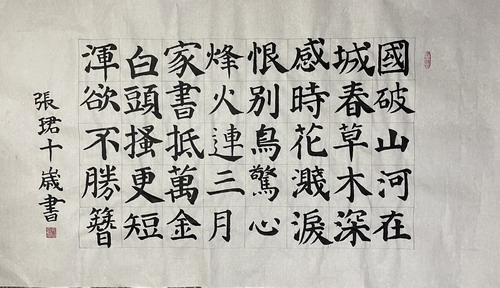 國破山河在
城春草木深
感時花濺淚
恨別鳥驚心
烽火連三月
家書抵萬金
白頭搔更短
渾欲不勝簪
張珺十歲書